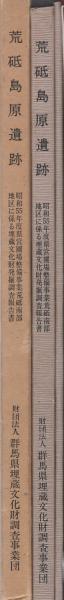 荒砥島原遺跡
昭和55年度県営圃場整備事業荒砥南部
地区に係る埋蔵文化財発掘調査報告書
財団法人 群馬県埋蔵文化財調査事業団
荒砥島原遺跡
昭和55年度県営圃場整備事業荒砥南部
地区に係る埋蔵文化財発掘調査報告書
財団法人 群馬県埋蔵文化財調査事業団